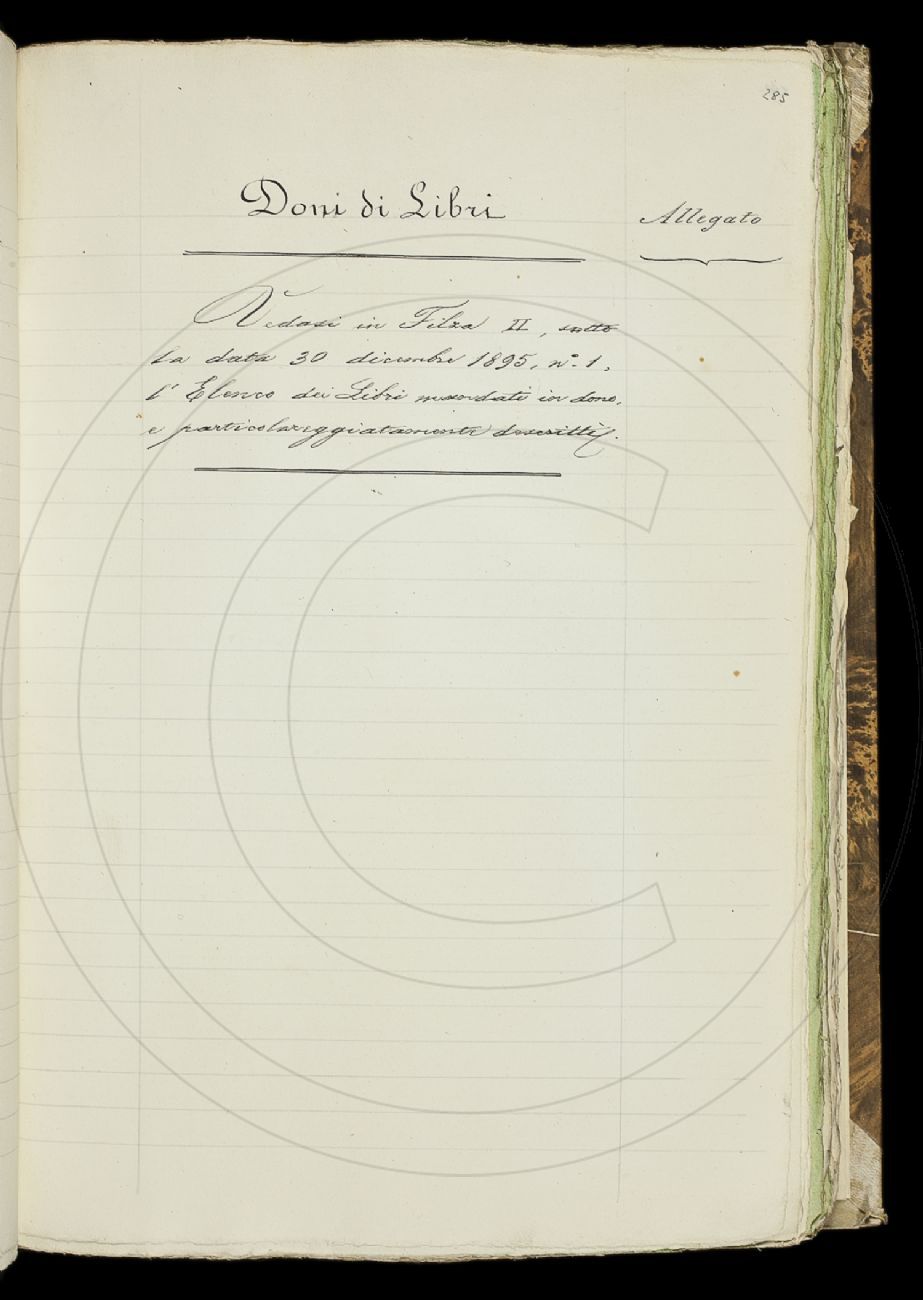 285
Doni di Libri
Allegato
Vedasi in Filza II, sotto
la data 30 dicembre 1895, n.º 1,
l' Elenco dei Libri mandati in dono,
e particolareggiatamente descritti.